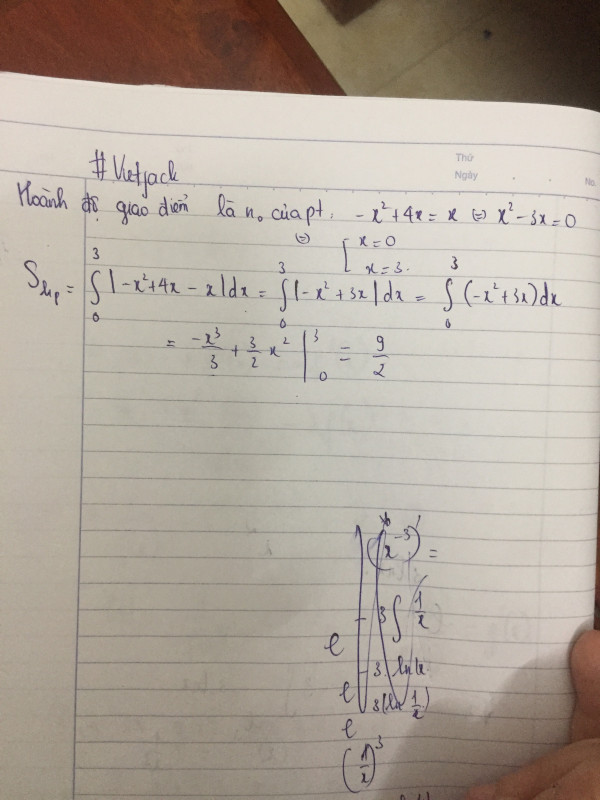 Thứ
Ngày
No.
#Vietjack
Hoành độ giao điểm là n₀ của pt: -x²+4x = x ⇔ x²-3x=0
⇔ [ x=0
x=3.
S_hp = ∫₀³ |-x²+4x - x|dx = ∫₀³ |-x²+3x|dx = ∫₀³ (-x²+3x)dx
= -x³/3 + 3/2 x² |₀³ = 9/2
(x⁻³)' =
3∫ 1/x
e
3.lnx
e
3(ln 1/x)
e
(1/x)³